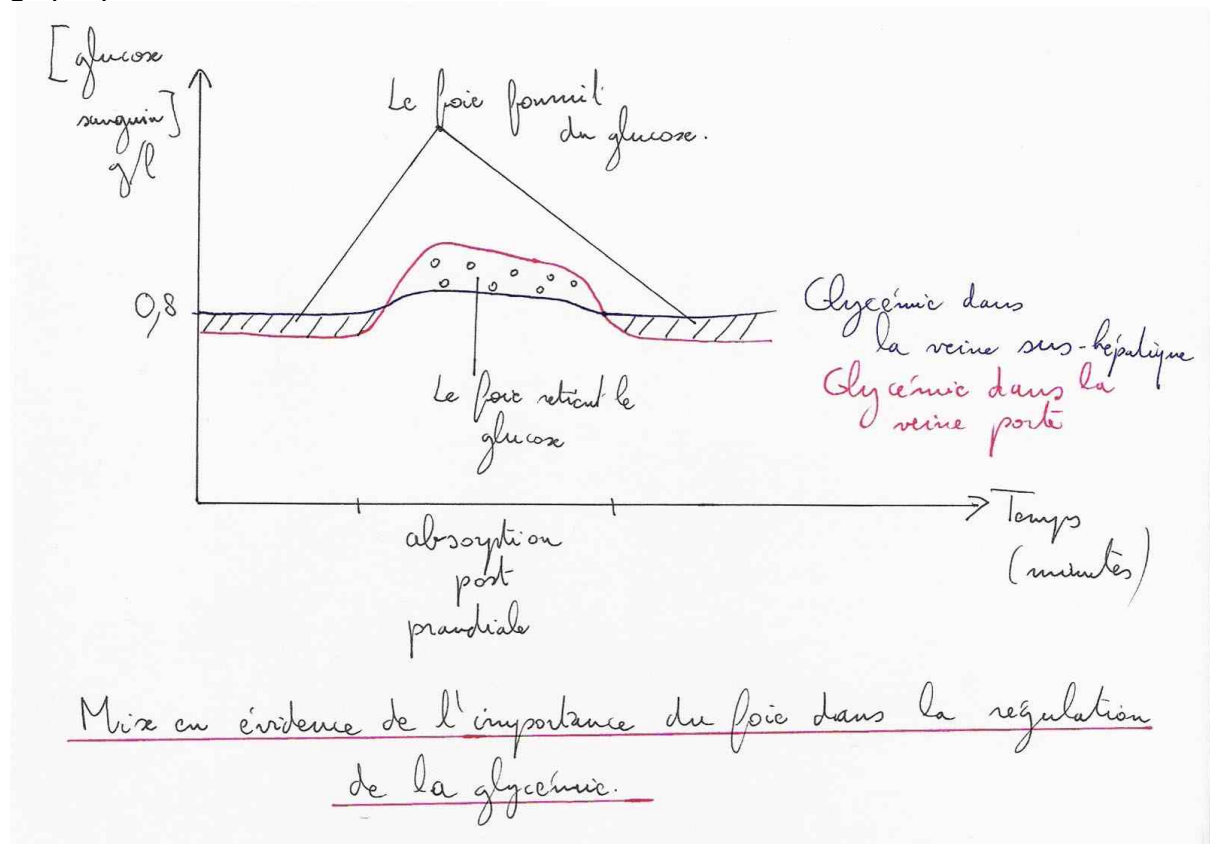 [glucose
sanguin]
g/l
Le foie fournit
du glucose.
0,8
Glycémie dans
la veine sus-hépatique
Glycémie dans la
veine porte
Le foie retient le
glucose
Temps
(minutes)
absorption
post
prandiale
Mise en évidence de l'importance du foie dans la régulation
de la glycémie.